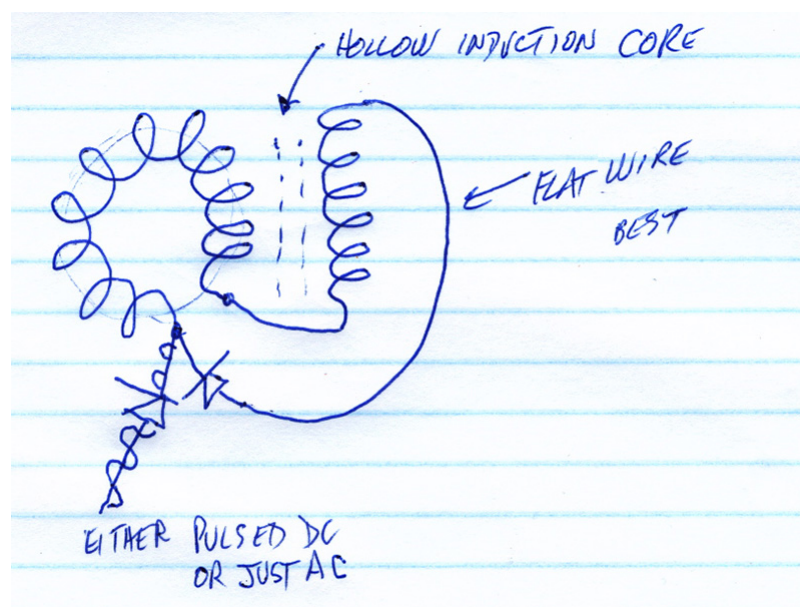 HOLLOW INDUCTION CORE
FLAT WIRE
BEST
EITHER PULSED DC
OR JUST AC